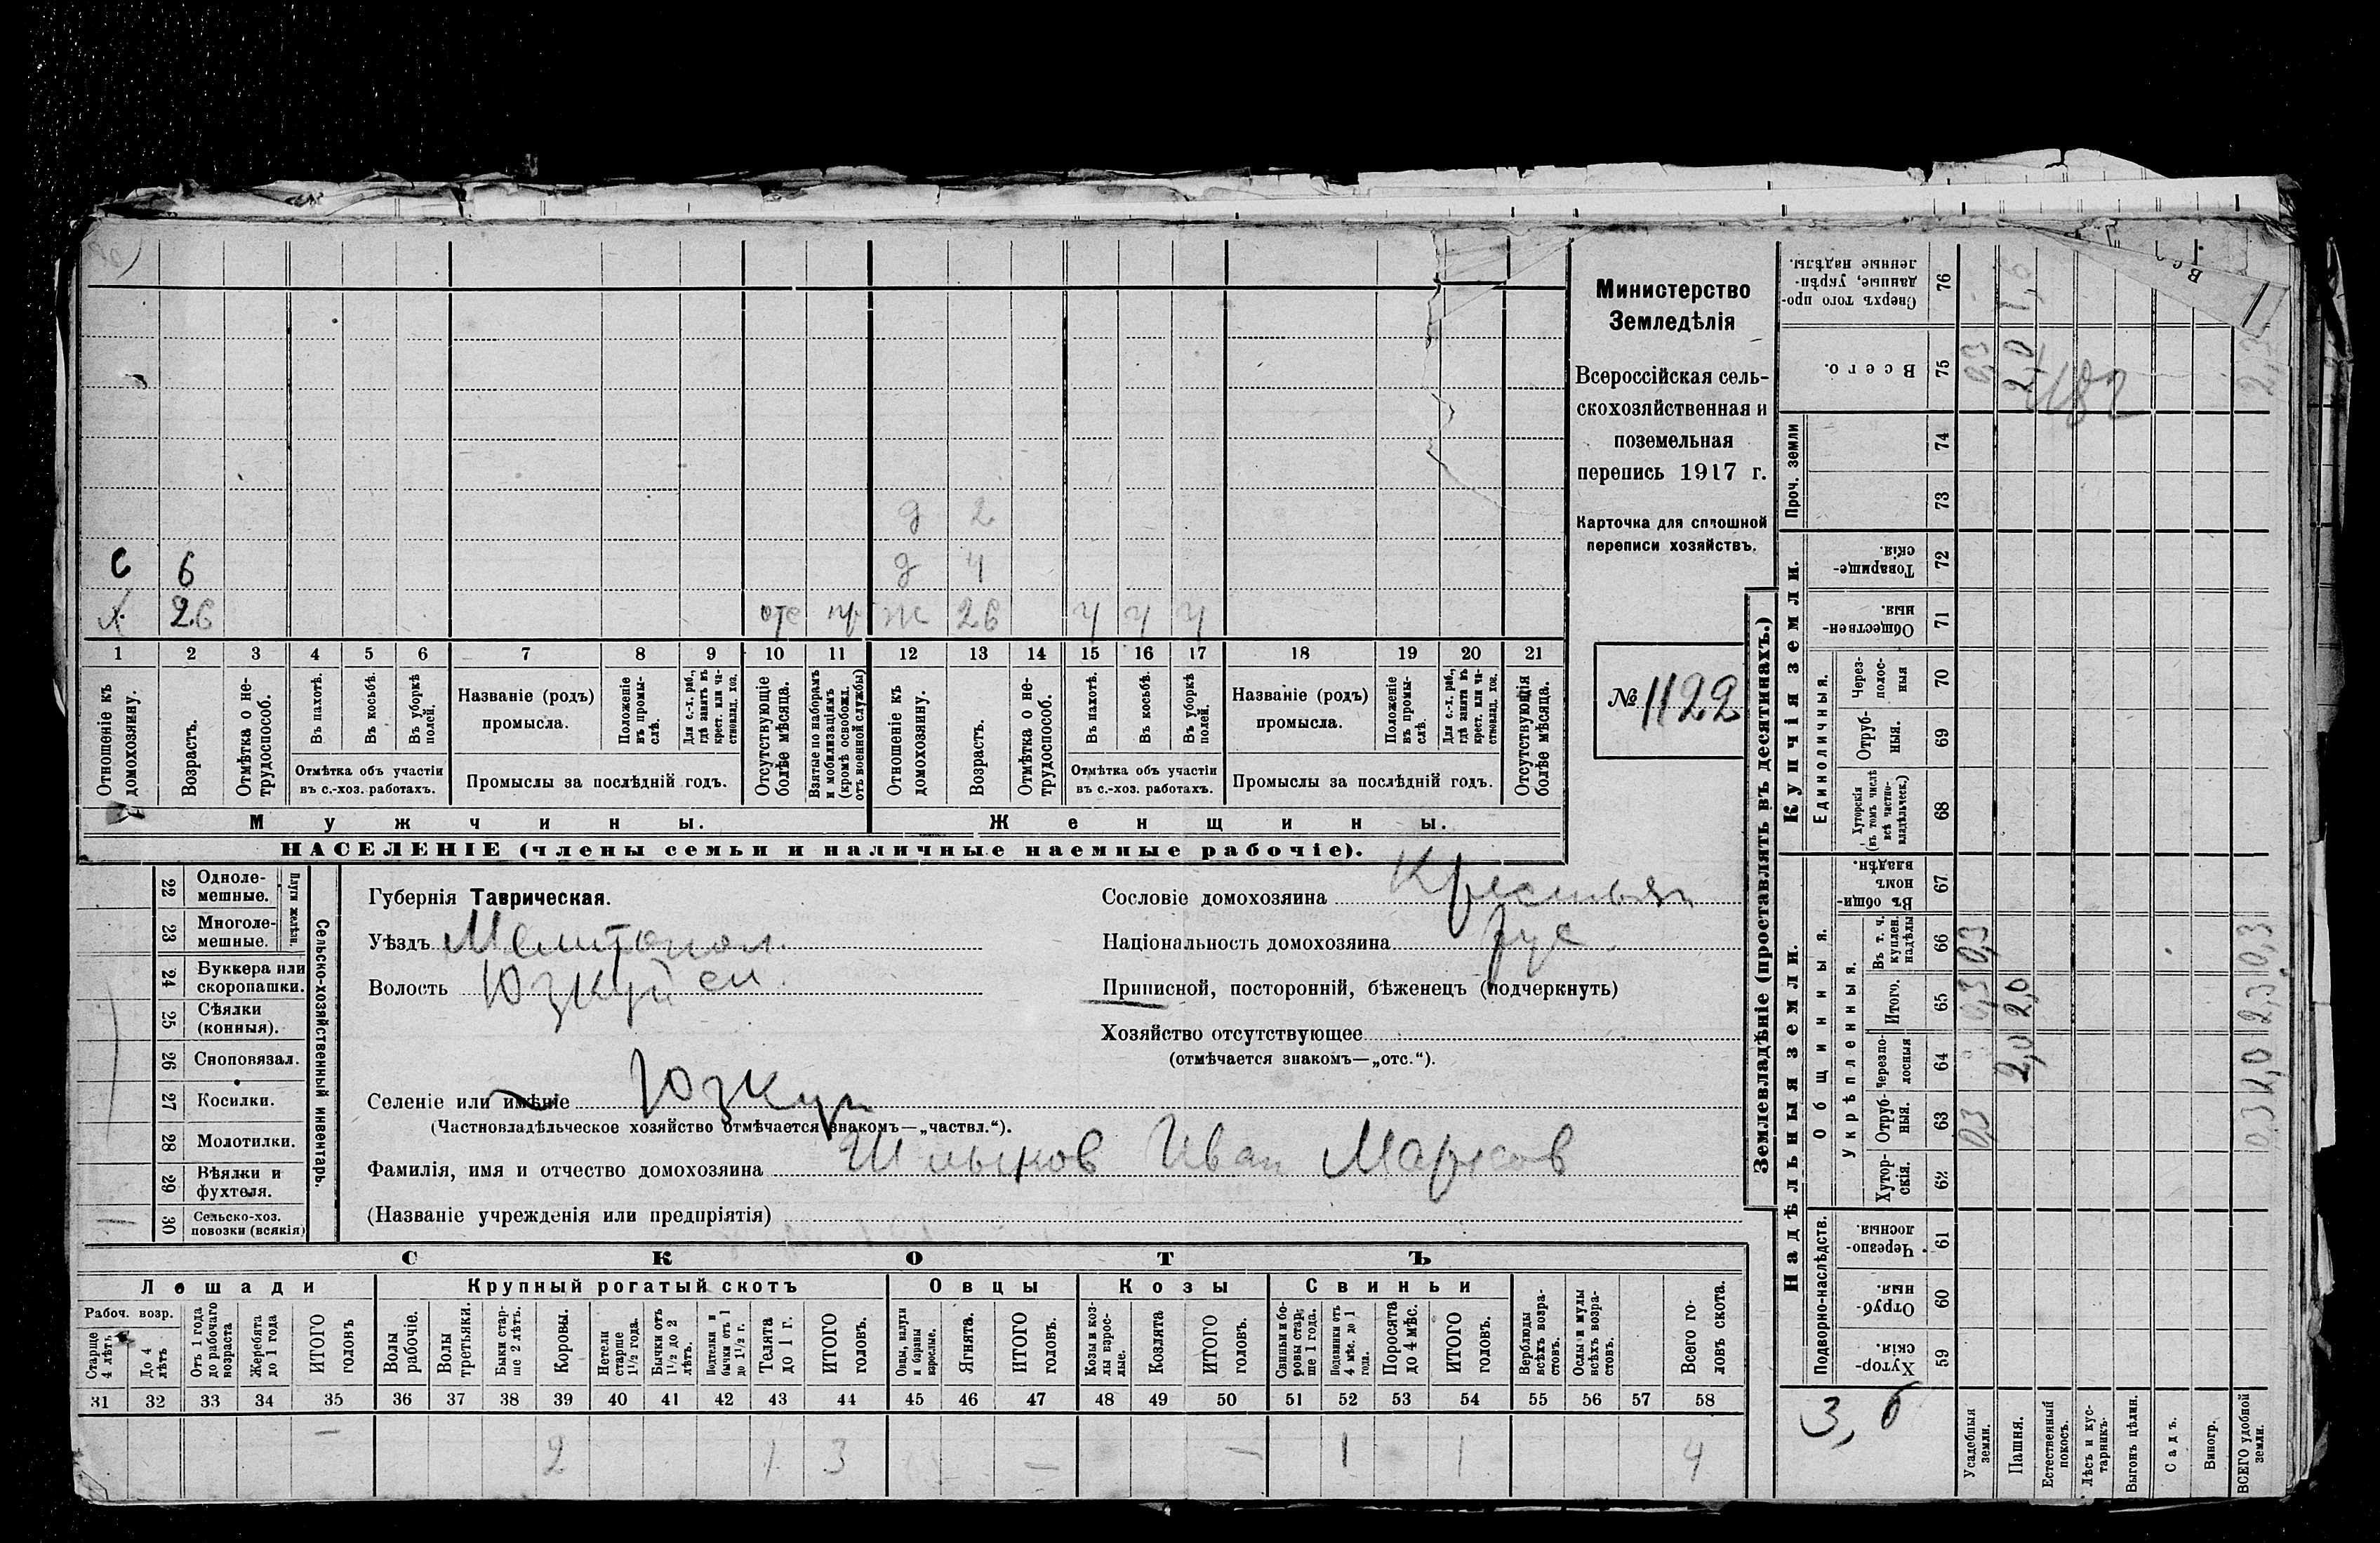 Министерство
Земледѣлія
Всероссійская сель-
скохозяйственная и
поземельная
перепись 1917 г.
Карточка для сплошной
переписи хозяйствъ.
№ 1122
д 2
С 6 д 4
Х 26 отс пр ж 26 ч ч ч
1 2 3 4 5 6 7 8 9 10 11 12 13 14 15 16 17 18 19 20 21
Отношеніе къ домохозяину.
Возрастъ.
Отмѣтка о не-трудоспособ.
Въ пахотѣ.
Въ косьбѣ.
Въ уборкѣ полей.
Отмѣтка объ участіи
въ с.-хоз. работахъ.
Названіе (родъ)
промысла.
Положеніе въ промы-слѣ.
Для с.-х. раб., гдѣ занятъ въ крест. или ча-стновлад. хоз.
Промыслы за послѣдній годъ.
Отсутствующіе болѣе мѣсяца.
Взятые по наборамъ и мобилизаціямъ (кромѣ освобожд. отъ военной службы)
Отношеніе къ домохозяину.
Возрастъ.
Отмѣтка о не-трудоспособ.
Въ пахотѣ.
Въ косьбѣ.
Въ уборкѣ полей.
Отмѣтка объ участіи
въ с.-хоз. работахъ.
Названіе (родъ)
промысла.
Положеніе въ промы-слѣ.
Для с.-х. раб., гдѣ занята въ крест. или ча-стновлад. хоз.
Промыслы за послѣдній годъ.
Отсутствующія болѣе мѣсяца.
Мужчины. Женщины.
НАСЕЛЕНІЕ (члены семьи и наличные наемные рабочіе).
Сельско-хозяйственный инвентарь.
Плуги желѣзн.
22 Одноле-мешные.
23 Многоле-мешные.
24 Буккера или скоропашки.
25 Сѣялки (конныя).
26 Сноповязал.
27 Косилки.
28 Молотилки.
29 Вѣялки и фухтеля.
30 Сельско-хоз. повозки (всякія)
Губернія Таврическая.
Уѣздъ Мелитопол.
Волость Юзкуйск.
Селеніе или имѣніе Юзкуи
(Частновладѣльческое хозяйство отмѣчается знакомъ—„частвл.“).
Фамилія, имя и отчество домохозяина Шлыков Иван Марков
(Названіе учрежденія или предпріятія)
Сословіе домохозяина Крестьян
Національность домохозяина рус.
Приписной, посторонній, бѣженецъ (подчеркнуть)
Хозяйство отсутствующее
(отмѣчается знакомъ—„отс.“).
СКОТЪ
Лошади Крупный рогатый скотъ Овцы Козы Свиньи
Рабоч. возр.
Старше 4 лѣтъ
До 4 лѣтъ
Отъ 1 года до рабочаго возраста
Жеребята до 1 года
ИТОГО головъ
Волы рабочіе.
Волы третьяки.
Быки стар-ше 2 лѣтъ.
Коровы.
Нетели старше 1½ года.
Бычки отъ 1½ до 2 лѣтъ.
Подтелки и бычки отъ 1 до 1½ г.
Телята до 1 г.
ИТОГО головъ.
Овцы, валухи и бараны взрослые.
Ягнята.
ИТОГО головъ.
Козы и коз-лы взрос-лые.
Козлята
ИТОГО головъ.
Свиньи и бо-ровы стар-ше 1 года.
Подсвинки отъ 4 мѣс. до 1 года.
Поросята до 4 мѣс.
ИТОГО головъ.
Верблюды всѣхъ возра-стовъ.
Ослы и мулы всѣхъ возра-стовъ.
Всего го-ловъ скота.
31 32 33 34 35 36 37 38 39 40 41 42 43 44 45 46 47 48 49 50 51 52 53 54 55 56 57 58
– 2 1 3 – – 1 1 4
Землевладѣніе (проставлять въ десятинахъ.)
Надѣльныя земли.
Купчія земли.
Проч. земли
Подворно-наслѣдств.
Общинныя.
Укрѣпленныя.
Единоличныя.
Хутор-скія. 59
Отруб-ныя. 60
Черезпо-лосныя 61
Хутор-скія. 62
Отруб-ныя. 63
Черезпо-лосныя 64
Итого. 65
Въ т. ч. куплен. надѣлы 66
Въ общин-номъ владѣн. 67
Хуторскія (въ томъ числѣ всѣ частно-владѣльческ.) 68
Отруб-ныя. 69
Через-полос-ныя 70
Обществен-ныя. 71
Товарище-скія. 72
73
74
Всего. 75
Сверхъ того про-данные, укрѣп-ленные надѣлы. 76
3,6
Усадебныя земли. 0,3 0,3 0,3 0,3
Пашня. 2,0 2,0 2,0 1,6
Естественный покосъ.
Лѣсъ и кус-тарникъ.
Выгонъ цѣлин.
Садъ.
Виногр.
ВСЕГО удобной земли. 0,3 2,0 2,3 0,3 2,3